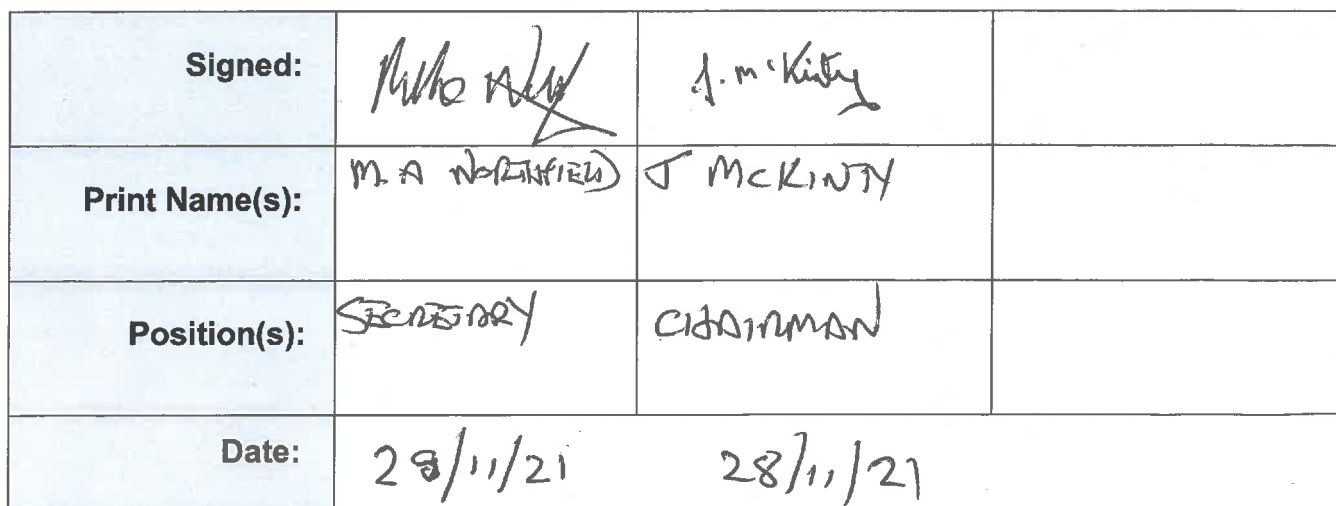 Signed: J. McKinty
Print Name(s): M. A NORTHFIELD J MCKINTY
Position(s): SECRETARY CHAIRMAN
Date: 28/11/21 28/11/21